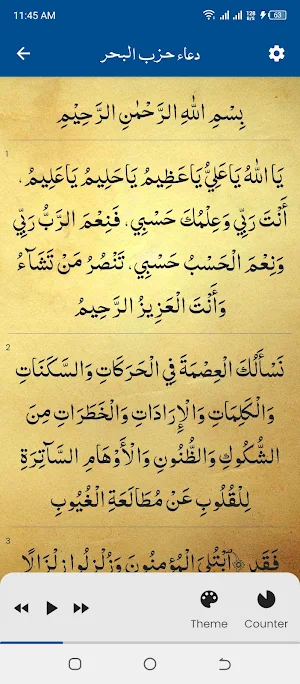 11:45 AM
128 B/S
63
دعاء حزب البحر
بِسْمِ اللهِ الرَّحْمٰنِ الرَّحِيْمِ
1
يَا اَللهُ يَا عَلِيُّ يَا عَظِيْمُ يَا حَلِيْمُ يَا عَلِيْمُ،
أَنْتَ رَبِّيْ وَعِلْمُكَ حَسْبِيْ، فَنِعْمَ الرَّبُّ رَبِّيْ
وَنِعْمَ الْحَسْبُ حَسْبِيْ، تَنْصُرُ مَنْ تَشَآءُ
وَأَنْتَ الْعَزِيْزُ الرَّحِيْمُ
2
نَسْأَلُكَ الْعِصْمَةَ فِي الْحَرَكَاتِ وَالسَّكَنَاتِ
وَالْكَلِمَاتِ وَالْإِرَادَاتِ وَالْخَطَرَاتِ مِنَ
الشُّكُوكِ وَالظُّنُونِ وَالْأَوْهَامِ السَّآتِرَةِ
لِلْقُلُوبِ عَنْ مُطَالَعَةِ الْغُيُوبِ
3
فَقَدِ ۞ ابْتُلِيَ الْمُؤْمِنُونَ وَزُلْزِلُوا زِلْزَالًا
Theme
Counter